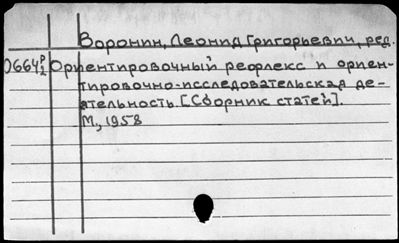 Воронин, Леонид Григорьевич, ред.
0664 р/2 Ориентировочный рефлекс и ориен-
тировочно-исследовательская де-
ятельность [Сборник статей].
М., 1958